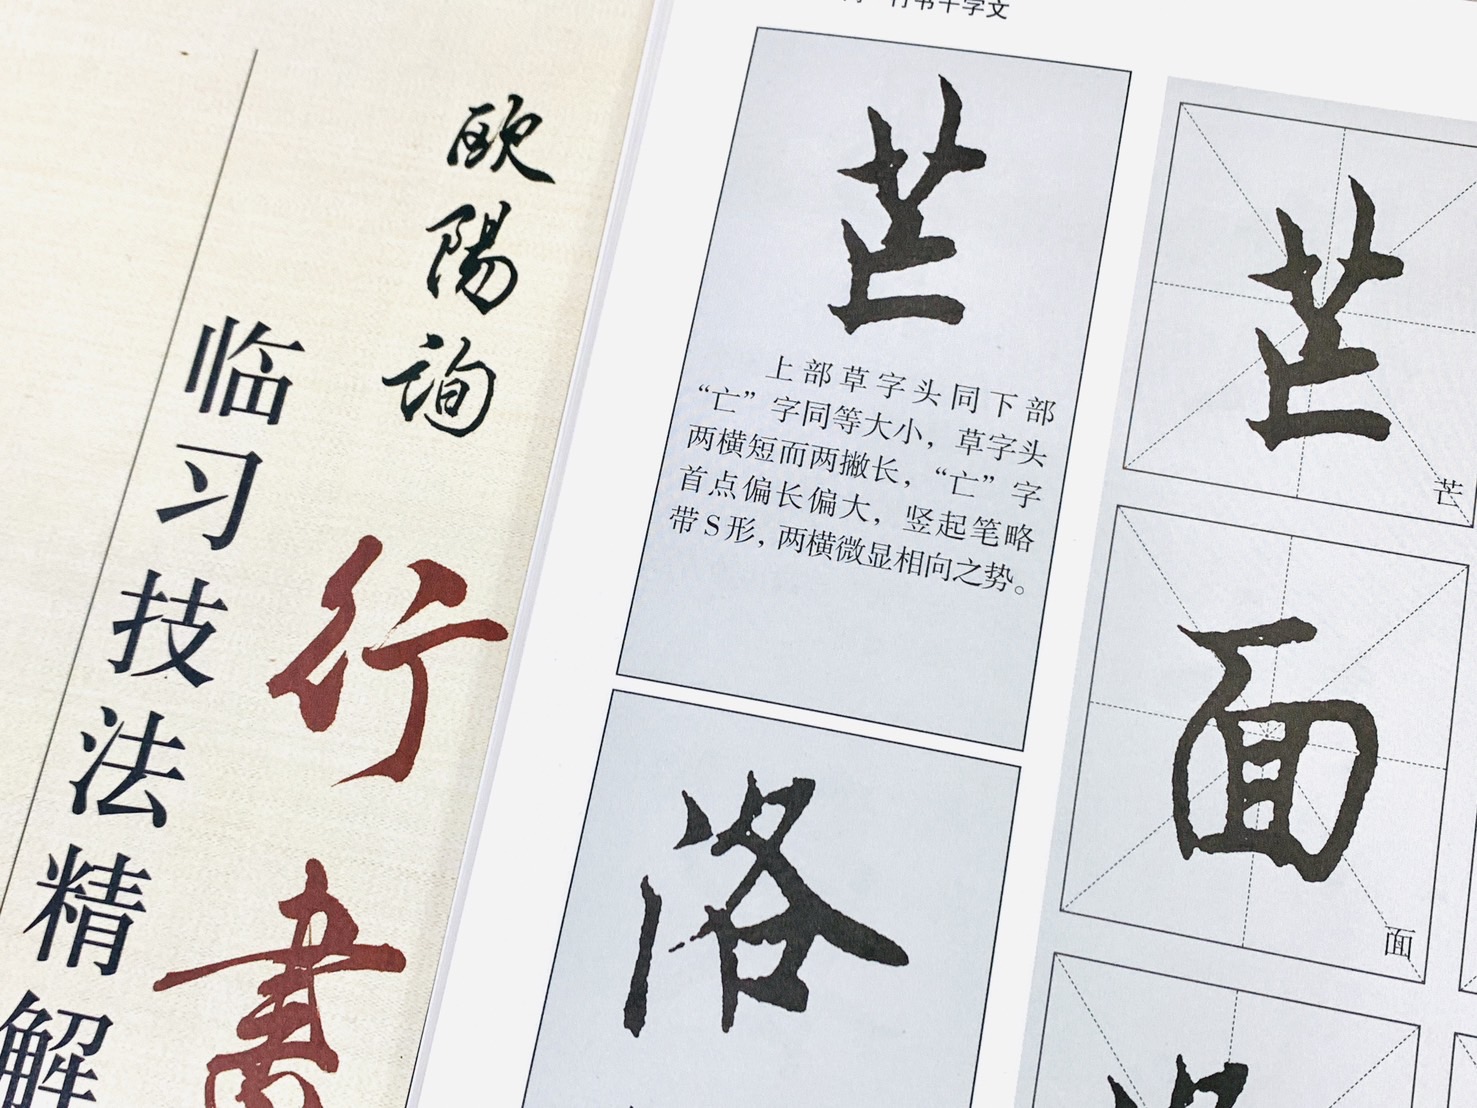 欧陽詢
行書
临习技法精解
行书千字文
芒
上部草字头同下部
“亡”字同等大小，草字头
两横短而两撇长，“亡”字
首点偏长偏大，竖起笔略
带S形，两横微显相向之势。
洛
芒
芒
面
面